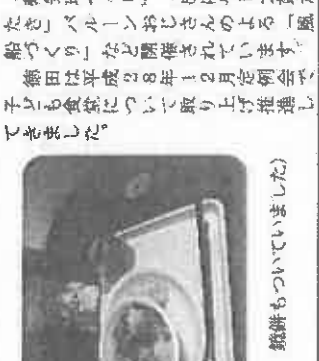 たき」バルーンおじさんのよる「風
船づくり」など開催されています。
田は平成28年12月定例会で、
子ども食堂について取り上げ推進し
てきました。
鏡餅もついていました)